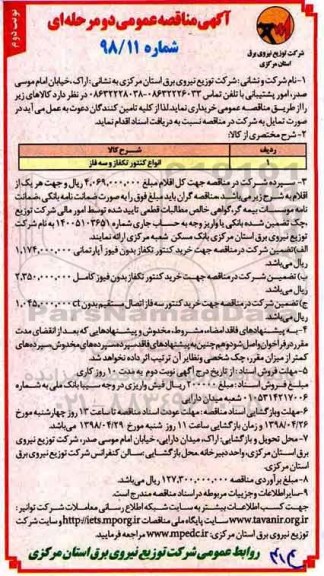 نوبت دوم
آگهی مناقصه عمومی دو مرحله ای
شماره ۹۸/۱۱
شرکت توزیع نیروی برق
استان مرکزی
۱-نام شرکت و نشانی: شرکت توزیع نیروی برق استان مرکزی به نشانی: اراک، خیابان امام موسی
صدر، امور پشتیبانی با تلفن تماس ۰۸۶۳۲۲۲۶۰۳۳-۰۸۶۳۲۲۲۸۰۳۸ در نظر دارد کالاهای زیر
را از طریق مناقصه عمومی خریداری نماید. لذا از کلیه تامین کنندگان دعوت به عمل می آید در
صورت تمایل به شرکت در مناقصه نسبت به دریافت اسناد اقدام نماید.
۲-شرح مختصری از کالا:
ردیف شرح کالا
۱ انواع کنتور تکفاز و سه فاز
۳- سپرده شرکت در مناقصه جهت کل اقلام مبلغ ۴,۰۶۹,۰۰۰,۰۰۰ ریال و جهت هر یک از
اقلام به شرح زیر می باشد. مناقصه گران باید مبلغ فوق را به صورت ضمانت نامه بانکی، ضمانت
نامه موسسات بیمه گر، گواهی خالص مطالبات قطعی تایید شده توسط امور مالی شرکت توزیع
،چک تضمین شده بانکی یا واریز وجه به حساب جاری شماره ۱۴۰۰۵۱۰۳۶۵۱ به نام شرکت
توزیع نیروی برق استان مرکزی بانک مسکن شعبه مرکزی ارائه نمایند.
الف) تضمین شرکت در مناقصه جهت خرید کنتور تکفاز بدون فیوز آپارتمانی ۱,۱۷۴,۰۰۰,۰۰۰
ریال می باشد.
ب) تضمین شرکت در مناقصه جهت خرید کنتور تکفاز بدون فیوز کامل ۲,۳۵۰,۰۰۰,۰۰۰
ریال می باشد.
ج) تضمین شرکت در مناقصه جهت خرید کنتور سه فاز اتصال مستقیم بدون ct ۱,۰۴۵,۰۰۰,۰۰۰
ریال می باشد.
۴-به پیشنهادهای فاقد امضاء، مشروط، مخدوش و پیشنهادهایی که بعد از انقضای مدت
مقرر در فراخوان واصل شود و هم چنین به پیشنهادهای فاقد سپرده، سپرده های مخدوش، سپرده های
کمتر از میزان مقرر، چک شخصی و نظایر آن ترتیب اثر داده نخواهد شد.
۵-مهلت فروش اسناد: از تاریخ درج آگهی نوبت دوم به مدت ۱۰ روز کاری
مبلغ فروش اسناد: مبلغ ۲۰۰۰۰۰ ریال فیش واریزی در وجه سیبا بانک ملی به شماره
۰۱۰۵۳۱۴۲۱۷۰۰۶ شعبه میدان دارایی.
۶-مهلت و بازگشایی اسناد مناقصه: مهلت عودت اسناد مناقصه تا ساعت ۱۳ روز چهارشنبه مورخ
۱۳۹۸/۰۴/۲۶ و زمان بازگشایی ساعت ۱۱ روز شنبه مورخ ۱۳۹۸/۰۴/۲۹ می باشد.
۷-محل تحویل و بازگشایی: اراک، میدان دارایی، خیابان امام موسی صدر، شرکت توزیع نیروی
برق استان مرکزی، واحد دبیرخانه محل بازگشایی سالن کنفرانس شرکت توزیع نیروی برق
استان مرکزی.
۸-مبلغ برآوردی مناقصه ۱۲۷,۳۰۰,۰۰۰,۰۰۰ ریال می باشد.
۹-سایر اطلاعات و جزییات مربوطه در اسناد مناقصه مندرج است.
جهت کسب اطلاعات بیشتر به سایت شبکه اطلاع رسانی معاملات شرکت توانیر:
www.tavanir.org.ir سایت پایگاه ملی مناقصات http://iets.mporg.ir و سایت شرکت
توزیع نیروی برق: www.mpedc.ir مراجعه فرمایید.
روابط عمومی شرکت توزیع نیروی برق استان مرکزی